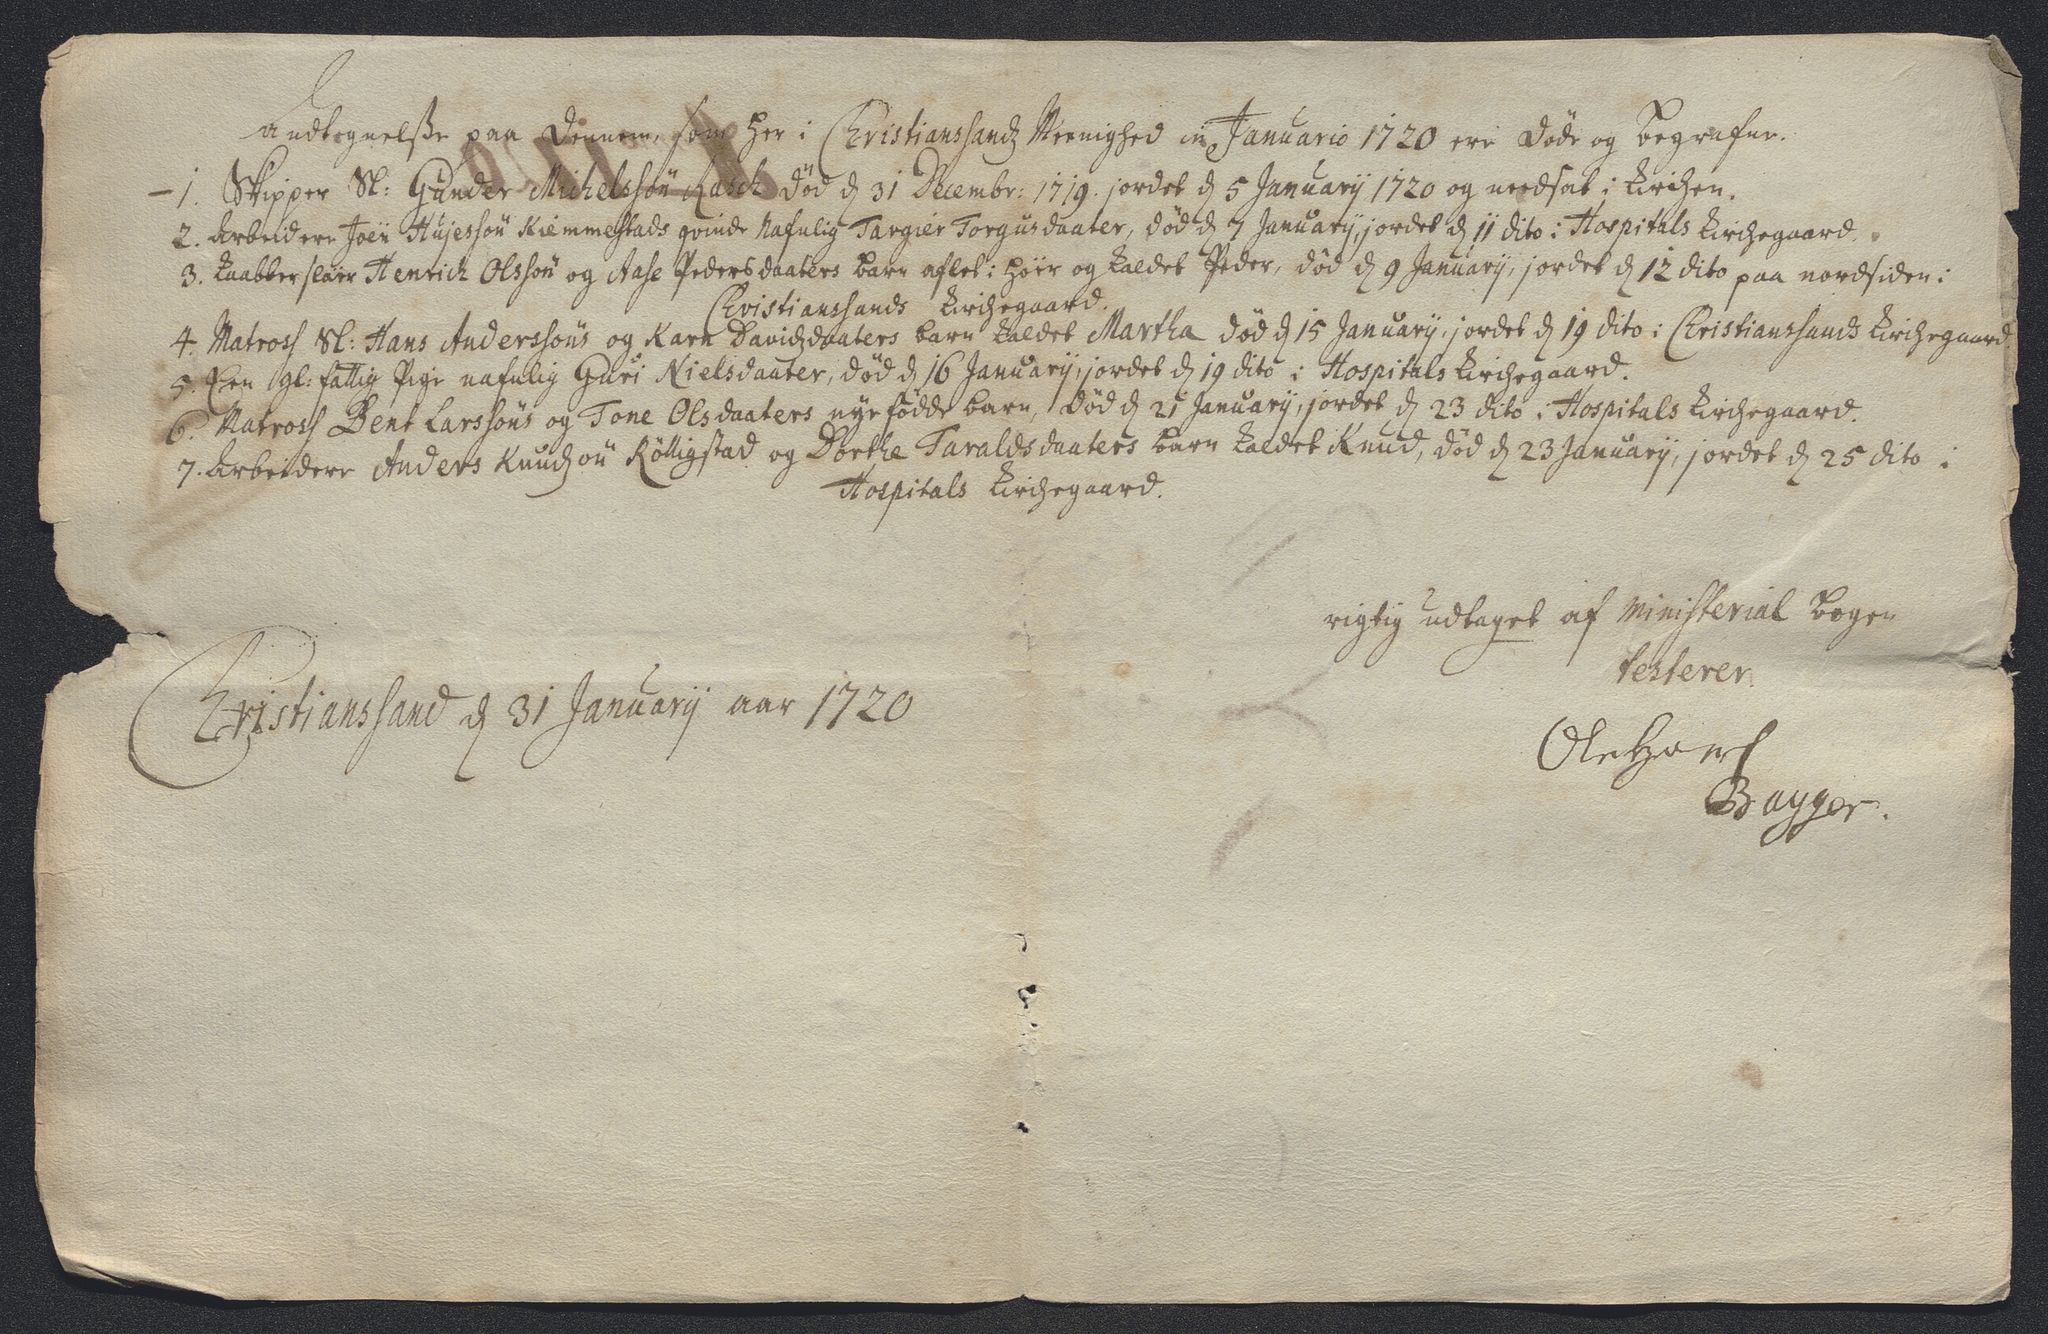 Andtegnelsße paa Dennem, som her i Christianssandz Meenighed in Januario 1720 ere døde og begrafne.
1. Skipper Sl: Gunder Michelssøn Rasch død d 31 Decembr: 1719. jordet d 5 Januarij 1720 og nedsat i Kirchen.
2. Arbeidere Joen Hujessøn Kiemmestads qvinde Nafnlig Targier Torgusdaater, død d 7 Januarij, jordet d 11 dito i Hospitals Kirchegaard.
3. Kaabberslaer Henrich Olssøn og Aase Pedersdaaters barn aflet i hoer og Kaldet Peder, død d 9 Januarij, jordet d 12 dito paa nordsiden i
Christianssands Kirchegaard.
4. Matross Sl: Hans Anderssøns og Karn Davidzdaaters barn Kaldet Martha død d 15 Januarij, jordet d 19 dito i Christianssands Kirchegaard
5. Een gl: fattig Pige nafnlig Guri Nielsdaater, død d 16 Januarij, jordet d 19 dito i Hospitals Kirchegaard.
6. Matross Bent Larssøns og Tone Olsdaaters nyefødde barn, død d 21 Januarij, jordet d 23 dito i Hospitals Kirchegaard.
7. Arbeidere Anders Knudzøn Rølligstad og Dorthe Taraldsdaaters barn Kaldet Knud, død d 23 Januarij, jordet d 25 dito i
Hospitals Kirchegaard.
rigtig udtaget af Ministerial bogen
testerer
Christianssand d 31 Januarij aar 1720
Ole
Bagger.